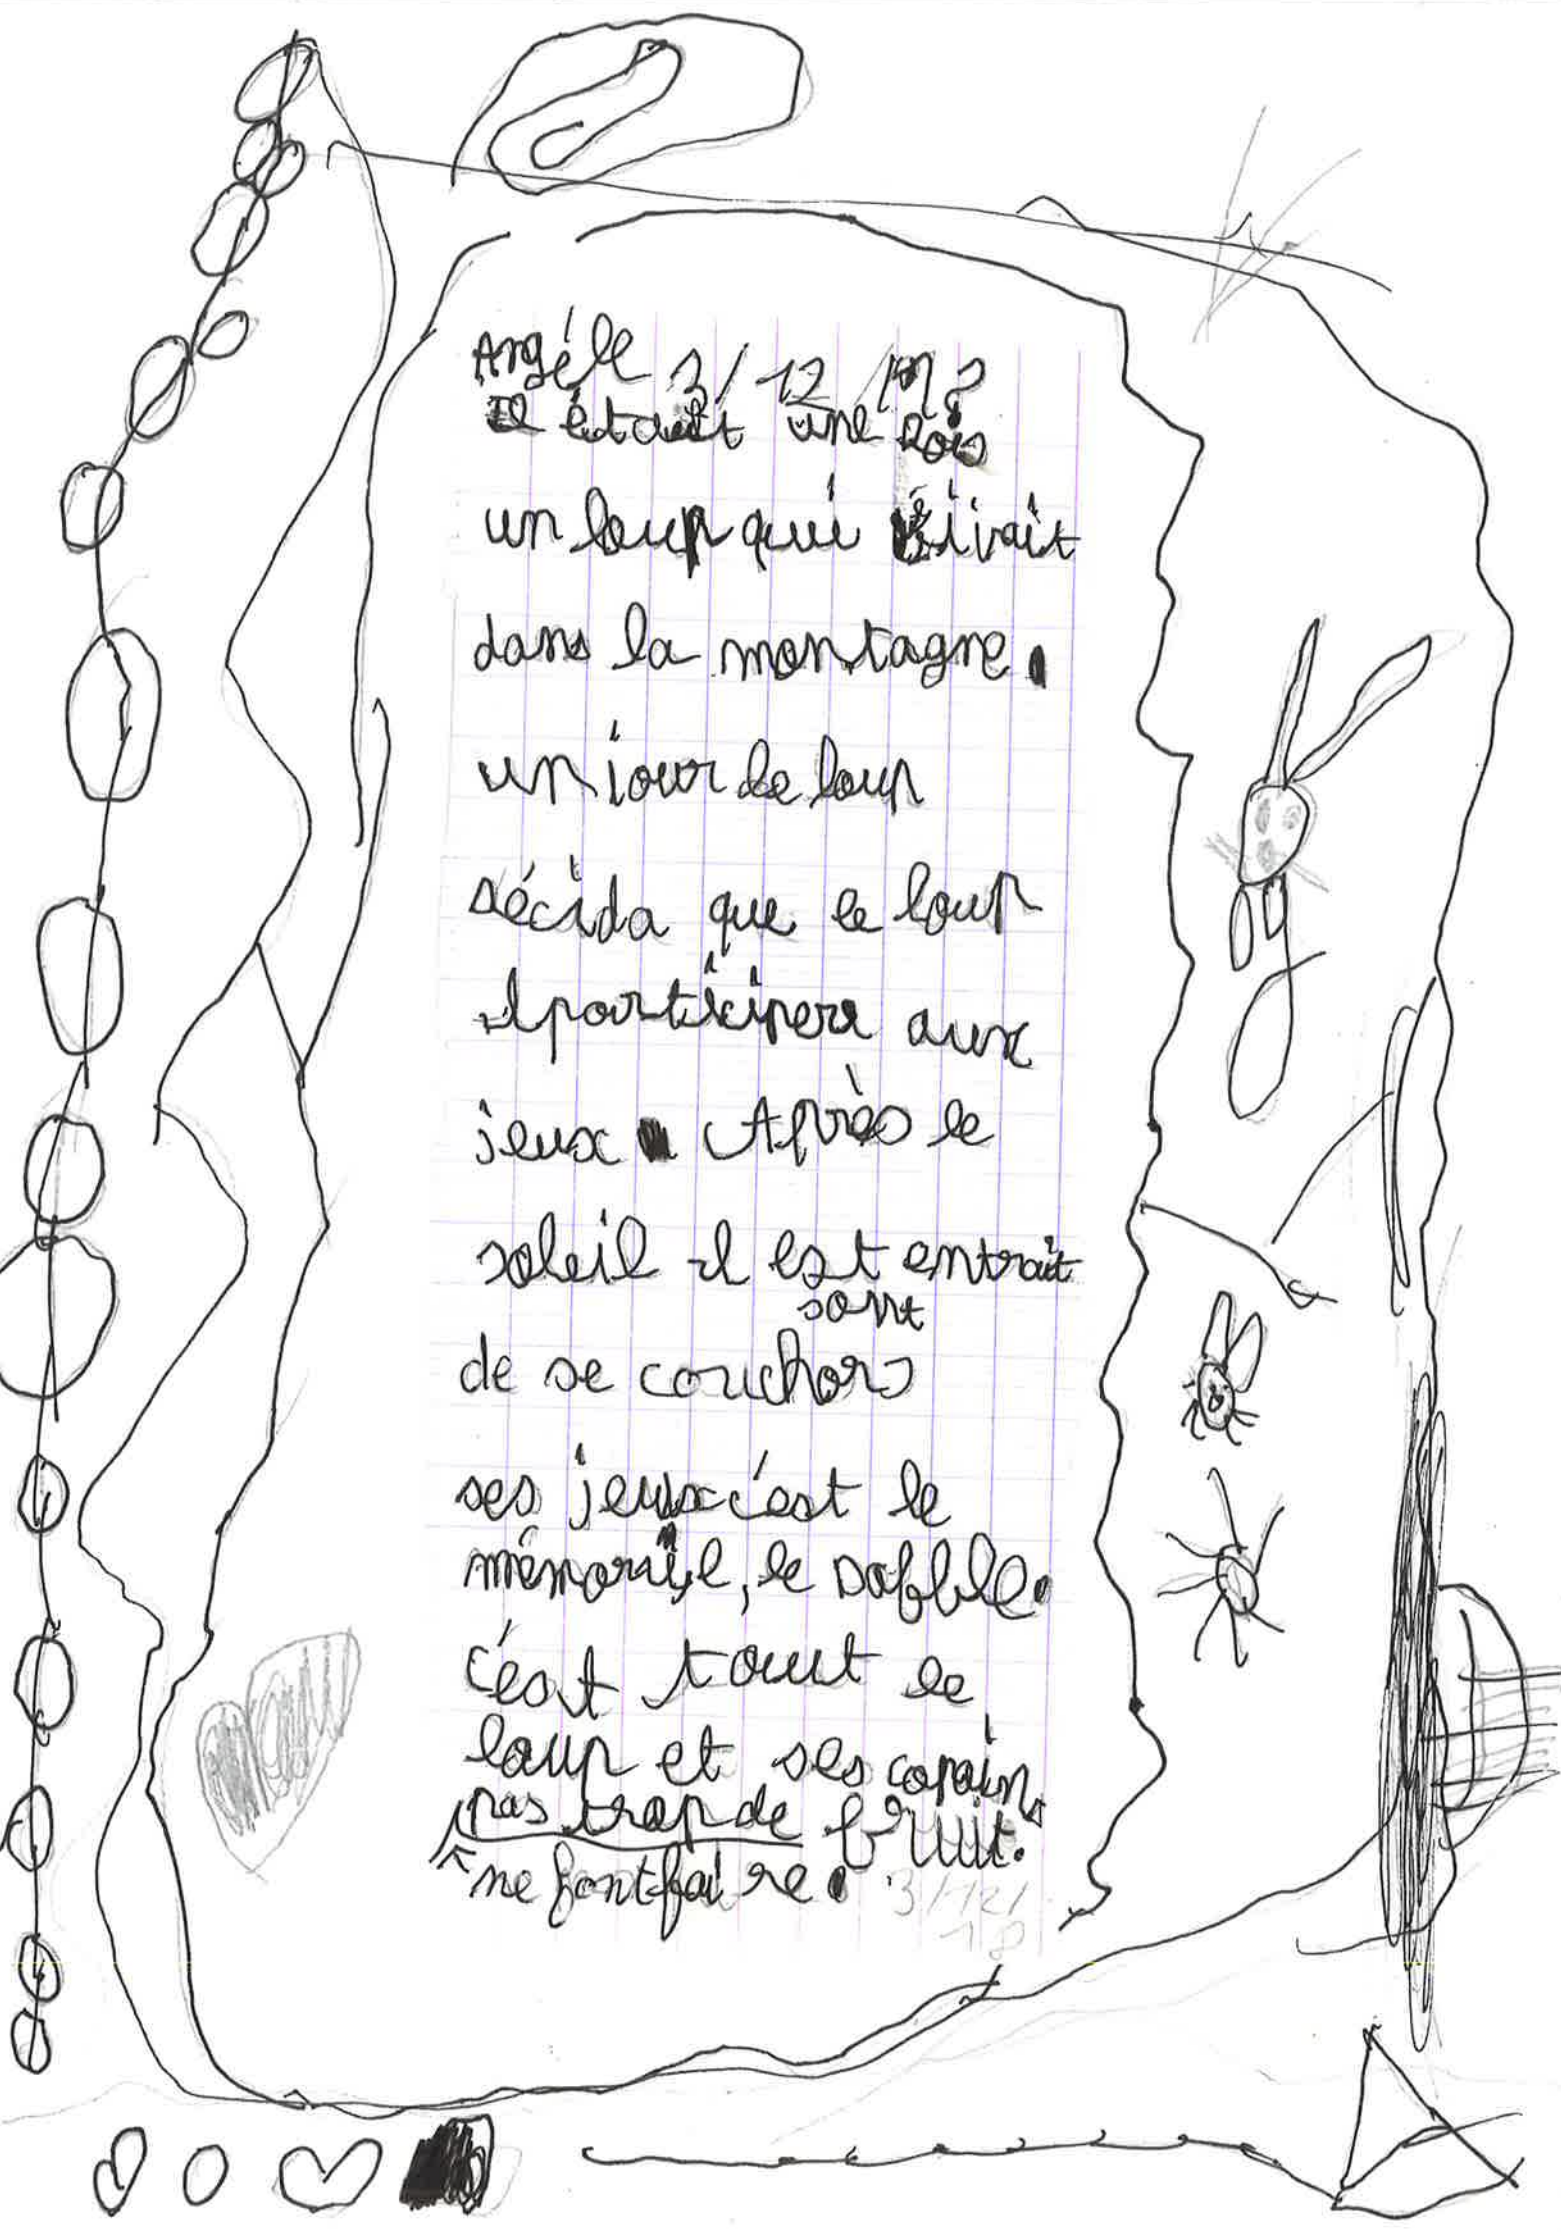 Angéle 3/12
Il était une fois
un loup qui vivait
dans la montagne.
un jour le loup
décida que le loup
il participera aux
jeux. Après le
soleil il est entrait
sont
de se couchor
ses jeux c'est le
le dobble.
c'est tout le
loup et ses copains
pas trop de bruit.
ne font faire.
3/12/
18